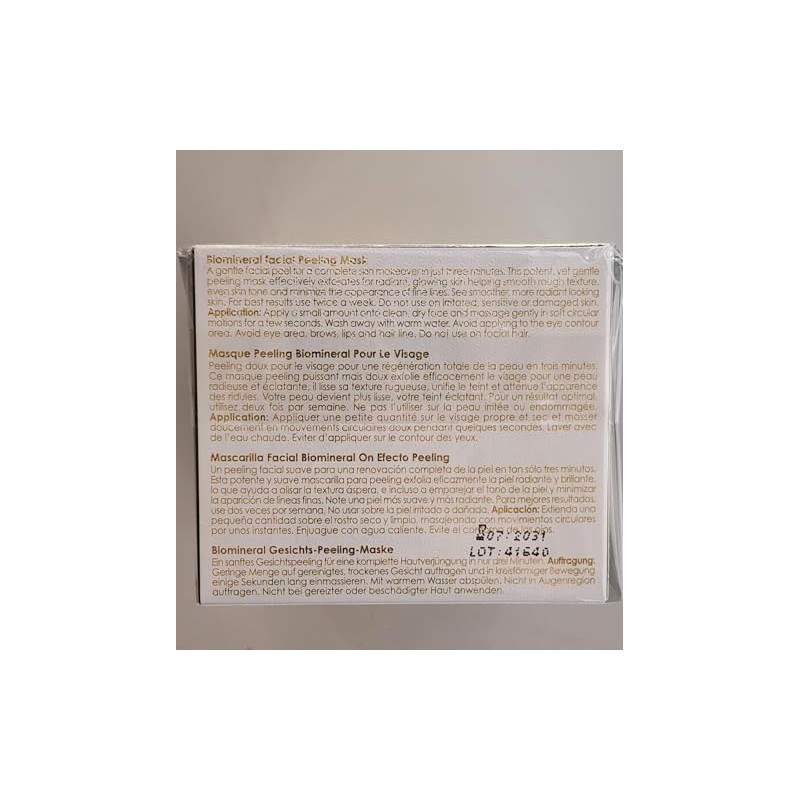 Biomineral Facial Peeling Mask
A gentle facial peel for a complete skin makeover in just three minutes. This potent, yet gentle
peeling mask effectively exfoliates for radiant, glowing skin helping smooth rough texture,
even skin tone and minimize the appearance of fine lines. See smoother, more radiant looking
skin. For best results use twice a week. Do not use on irritated, sensitive or damaged skin.
Application: Apply a small amount onto clean, dry face and massage gently in soft circular
motions for a few seconds. Wash away with warm water. Avoid applying to the eye contour
area. Avoid eye area, brows, lips and hair line. Do not use on facial hair.
Masque Peeling Biomineral Pour Le Visage
Peeling doux pour le visage pour une régénération totale de la peau en trois minutes.
Ce masque peeling puissant mais doux exfolie efficacement le visage pour une peau
radieuse et éclatante, il lisse sa texture rugueuse, unifie le teint et atténue l'apparence
des ridules. Votre peau devient plus lisse, votre teint éclatant. Pour un résultat optimal,
utilisez deux fois par semaine. Ne pas l'utiliser sur la peau irritée ou endommagée.
Application: Appliquer une petite quantité sur le visage propre et sec et masser
doucement en mouvements circulaires doux pendant quelques secondes. Laver avec
de l'eau chaude. Eviter d'appliquer sur le contour des yeux.
Mascarilla Facial Biomineral On Efecto Peeling
Un peeling facial suave para una renovación completa de la piel en tan sólo tres minutos.
Esta potente y suave mascarilla para peeling exfolia eficazmente la piel radiante y brillante,
lo que ayuda a alisar la textura áspera, e incluso a emparejar el tono de la piel y minimizar
la aparición de líneas finas. Note una piel más suave y más radiante. Para mejores resultados,
use dos veces por semana. No usar sobre la piel irritada o dañada. Aplicación: Extienda una
pequeña cantidad sobre el rostro seco y limpio, masajeando con movimientos circulares
por unos instantes. Enjuague con agua caliente. Evite el contorno de los ojos.
07/2031
LOT:41640
Biomineral Gesichts-Peeling-Maske
Ein sanftes Gesichtspeeling für eine komplette Hautverjüngung in nur drei Minuten. Auftragung:
Geringe Menge auf gereinigtes, trockenes Gesicht auftragen und in kreisförmiger Bewegung
einige Sekunden lang einmassieren. Mit warmem Wasser abspülen. Nicht in Augenregion
auftragen. Nicht bei gereizter oder beschädigter Haut anwenden.